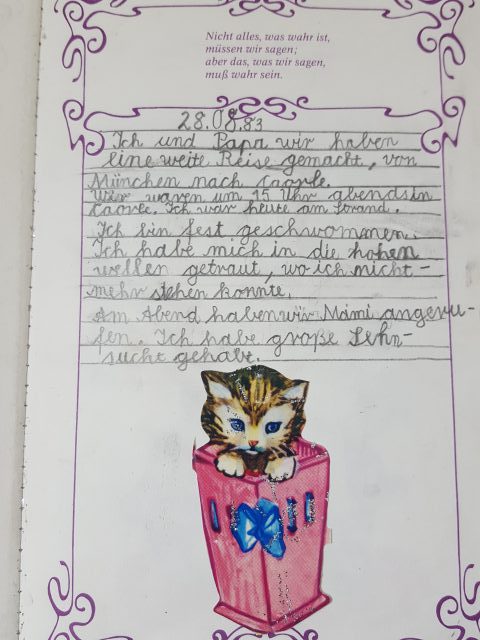 Nicht alles, was wahr ist,
müssen wir sagen;
aber das, was wir sagen,
muß wahr sein.
28.08.83
Ich und Papa wir haben
eine weite Reise gemacht, von
München nach Caorle.
Wir waren um 15 Uhr abends in
Caorle. Ich war heute am Strand.
Ich bin fest geschwommen.
Ich habe mich in die hohen
wellen getraut, wo ich nicht-
mehr stehen konnte.
Am Abend haben wir Mami angeru-
fen. Ich habe große Sehn-
sucht gehabt.